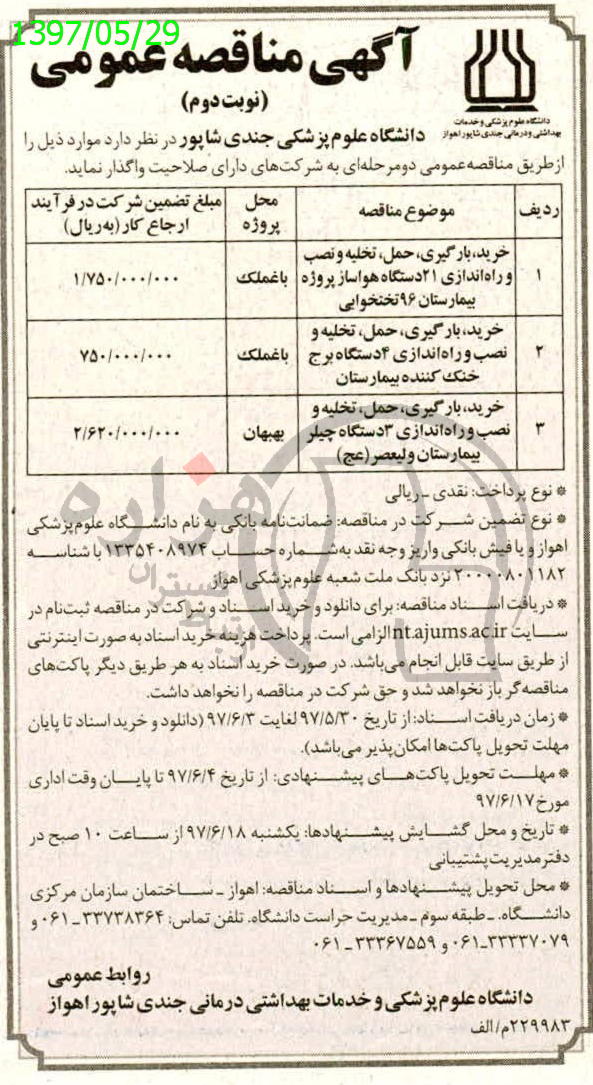 1397/05/29
آگهی مناقصه عمومی
(نوبت دوم)
دانشگاه علوم پزشکی و خدمات
بهداشتی و درمانی جندی شاپور اهواز
دانشگاه علوم پزشکی جندی شاپور در نظر دارد موارد ذیل را
از طریق مناقصه عمومی دو مرحله‌ای به شرکت‌های دارای صلاحیت واگذار نماید.
ردیف موضوع مناقصه محل پروژه مبلغ تضمین شرکت در فرآیند ارجاع کار (به ریال)
۱ خرید، بارگیری، حمل، تخلیه و نصب و راه‌اندازی ۲۱ دستگاه هواساز پروژه بیمارستان ۹۶ تختخوابی باغملک ۱/۷۵۰/۰۰۰/۰۰۰
۲ خرید، بارگیری، حمل، تخلیه و نصب و راه‌اندازی ۴ دستگاه برج خنک کننده بیمارستان باغملک ۷۵۰/۰۰۰/۰۰۰
۳ خرید، بارگیری، حمل، تخلیه و نصب و راه‌اندازی ۳ دستگاه چیلر بیمارستان ولیعصر (عج) بهبهان ۲/۶۲۰/۰۰۰/۰۰۰
* نوع پرداخت: نقدی ـ ریالی
* نوع تضمین شرکت در مناقصه: ضمانت‌نامه بانکی به نام دانشگاه علوم پزشکی
اهواز و یا فیش بانکی واریز وجه نقد به شماره حساب ۱۳۳۵۴۰۸۹۷۴ با شناسه
۲۰۰۰۰۸۰۱۱۸۲ نزد بانک ملت شعبه علوم پزشکی اهواز
* دریافت اسناد مناقصه: برای دانلود و خرید اسناد و شرکت در مناقصه ثبت‌نام در
سایت nt.ajums.ac.ir الزامی است. پرداخت هزینه خرید اسناد به صورت اینترنتی
از طریق سایت قابل انجام می‌باشد. در صورت خرید اسناد به هر طریق دیگر پاکت‌های
مناقصه‌گر باز نخواهد شد و حق شرکت در مناقصه را نخواهد داشت.
* زمان دریافت اسناد: از تاریخ ۹۷/۵/۳۰ لغایت ۹۷/۶/۳ (دانلود و خرید اسناد تا پایان
مهلت تحویل پاکت‌ها امکان‌پذیر می‌باشد).
* مهلت تحویل پاکت‌های پیشنهادی: از تاریخ ۹۷/۶/۴ تا پایان وقت اداری
مورخ ۹۷/۶/۱۷
* تاریخ و محل گشایش پیشنهادها: یکشنبه ۹۷/۶/۱۸ از ساعت ۱۰ صبح در
دفتر مدیریت پشتیبانی
* محل تحویل پیشنهادها و اسناد مناقصه: اهواز ـ ساختمان سازمان مرکزی
دانشگاه. ـ طبقه سوم ـ مدیریت حراست دانشگاه. تلفن تماس: ۳۳۷۳۸۳۶۴ ـ ۰۶۱ و
۳۳۳۳۷۰۷۹ـ۰۶۱ و ۳۳۳۶۷۵۵۹ ـ ۰۶۱
روابط عمومی
دانشگاه علوم پزشکی و خدمات بهداشتی درمانی جندی شاپور اهواز
۲۲۹۹۸۳/م الف
هزاره